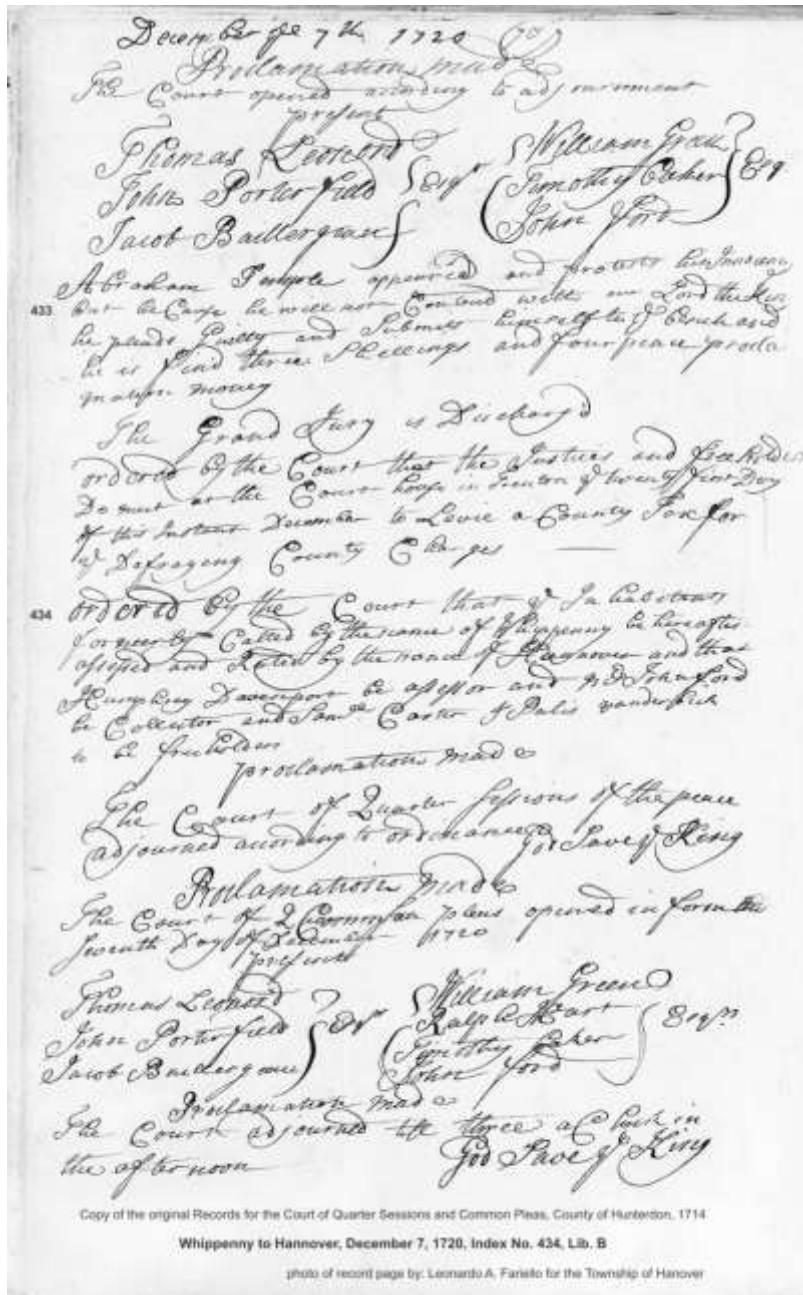 December ye 7th 1720
Proclamation made
The Court opened according to adjournment
present
Thomas Leonord
John Porterfield Esqr
Jacob
William Green
Timothy Baker Esq
John Ford
Abraham Temple appeared and protests his Innocency
433
but he will not Contend with our Lord the King
he pleads Guilty and Submits himself to ye Bench and
he is find three Shillings and four peace procla
mation money
The Grand Jury is Discharg'd
ordered by the Court that the Justices and freeholders
Do meet at the Court house in Trenton ye twenty first Day
of this Instant December to Levie a County Tax for
ye Defraying County Charges
434
ordered by the Court that ye Inhabitants
formerly Called by the name of Whippenny be hereafter
assessed and Rated by the name of Hannover and that
Humphrey Davenport be assessor and John Ford
be Collector and Saml Carter & Palis
to be freeholders
proclamation made
The Court of Quarter Sessions of the peace
adjourned according to ordinance God Save ye King
Proclamation made
The Court of Common pleas opened in form the
Seventh Day of December 1720
present
Thomas Leonord
John Porterfield Esqr
Jacob
William Green
Ralph Hart
Timothy Baker Esqrs
John Ford
Proclamation made
The Court adjourned till three a Clock in
the afternoon God Save ye King
Copy of the original Records for the Court of Quarter Sessions and Common Pleas, County of Hunterdon, 1714
Whippenny to Hannover, December 7, 1720, Index No. 434, Lib. B
photo of record page by: Leonardo A. Fariello for the Township of Hanover